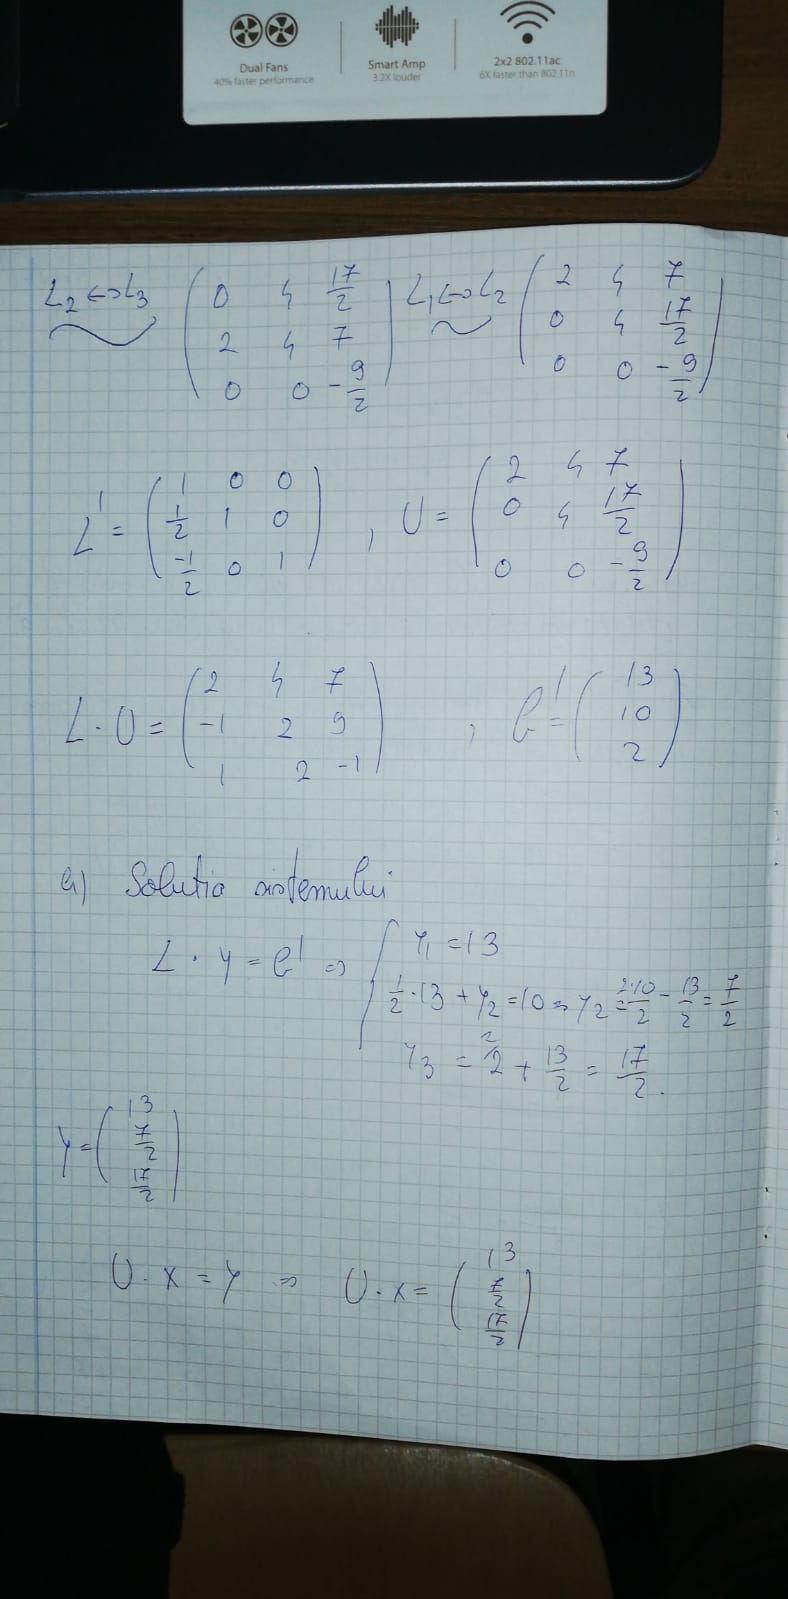 Dual Fans
40% faster performance
Smart Amp
3.2X louder
2x2 802.11ac
6X faster than 802.11n
L₂ ↔ L₃ ( 0 4 17/2 ; 2 4 7 ; 0 0 -9/2 ) L₁ ↔ L₂ ( 2 4 7 ; 0 4 17/2 ; 0 0 -9/2 )
L' = ( 1 0 0 ; 1/2 1 0 ; -1/2 0 1 ) , U = ( 2 4 7 ; 0 4 17/2 ; 0 0 -9/2 )
L · U = ( 2 4 7 ; -1 2 9 ; 1 2 -1 ) , b' = ( 13 ; 10 ; 2 )
a) Solutia sistemului
L · y = b' ⇒ { y₁ = 13
1/2 · 13 + y₂ = 10 ⇒ y₂ = 2·10/2 - 13/2 = 7/2
y₃ = ²2 + 13/2 = 17/2 .
y = ( 13 ; 7/2 ; 17/2 )
U · x = y ⇒ U · x = ( 13 ; 7/2 ; 17/2 )